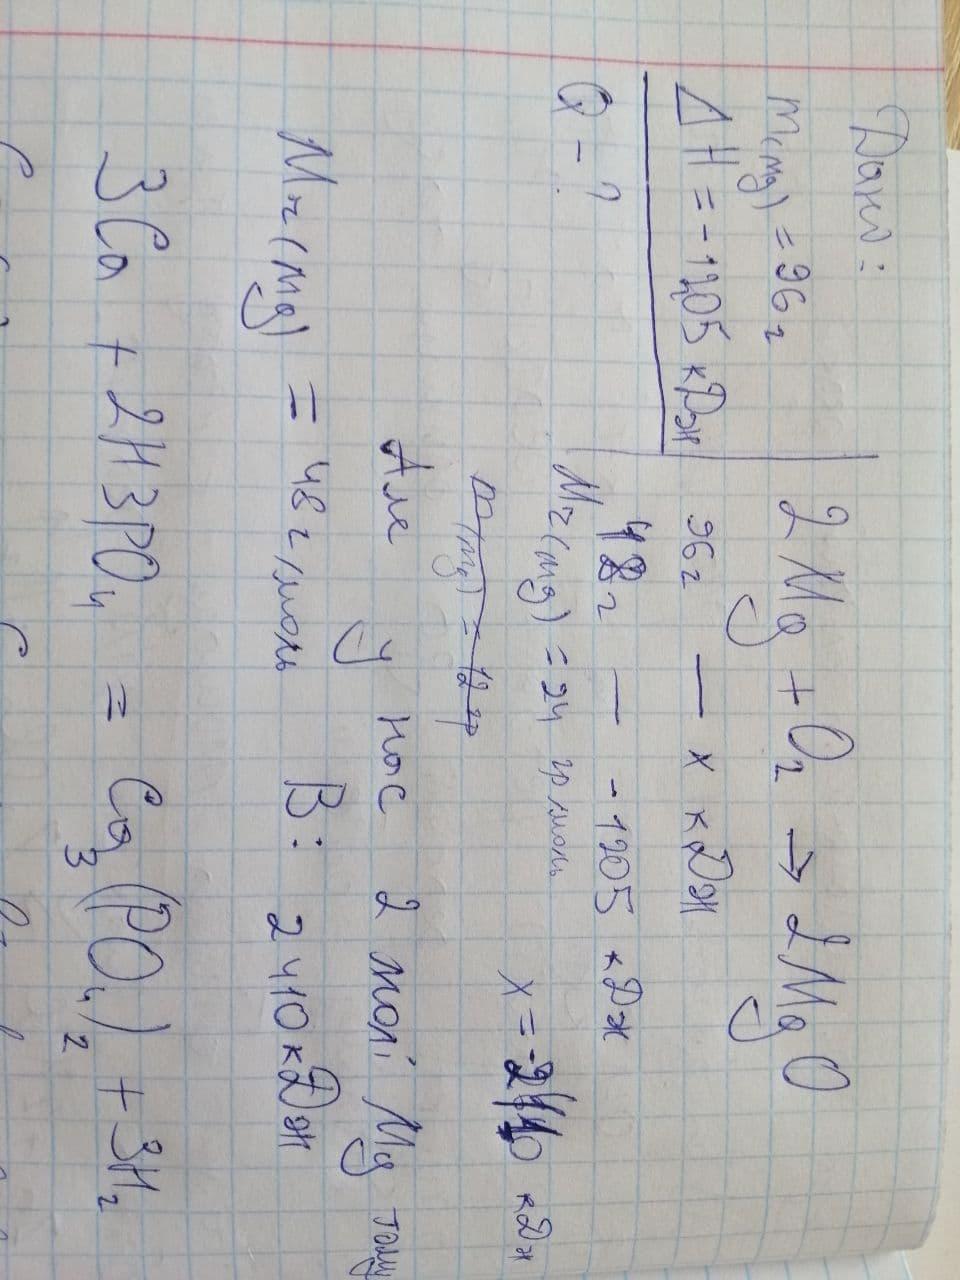 Дано:
m(Mg) = 96 г
ΔH = -1205 кДж
Q - ?
2Mg + O₂ → 2MgO
96 г — x кДж
48 г — -1205 кДж
Mr(Mg) = 24 гр/моль
x = -2410 кДж
m(Mg) = 12 гр
Але у нас 2 молі Mg тому
Mr(Mg) = 48 г/моль В: 2410 кДж
3Ca + 2H3PO₄ = Ca₃(PO₄)₂ + 3H₂